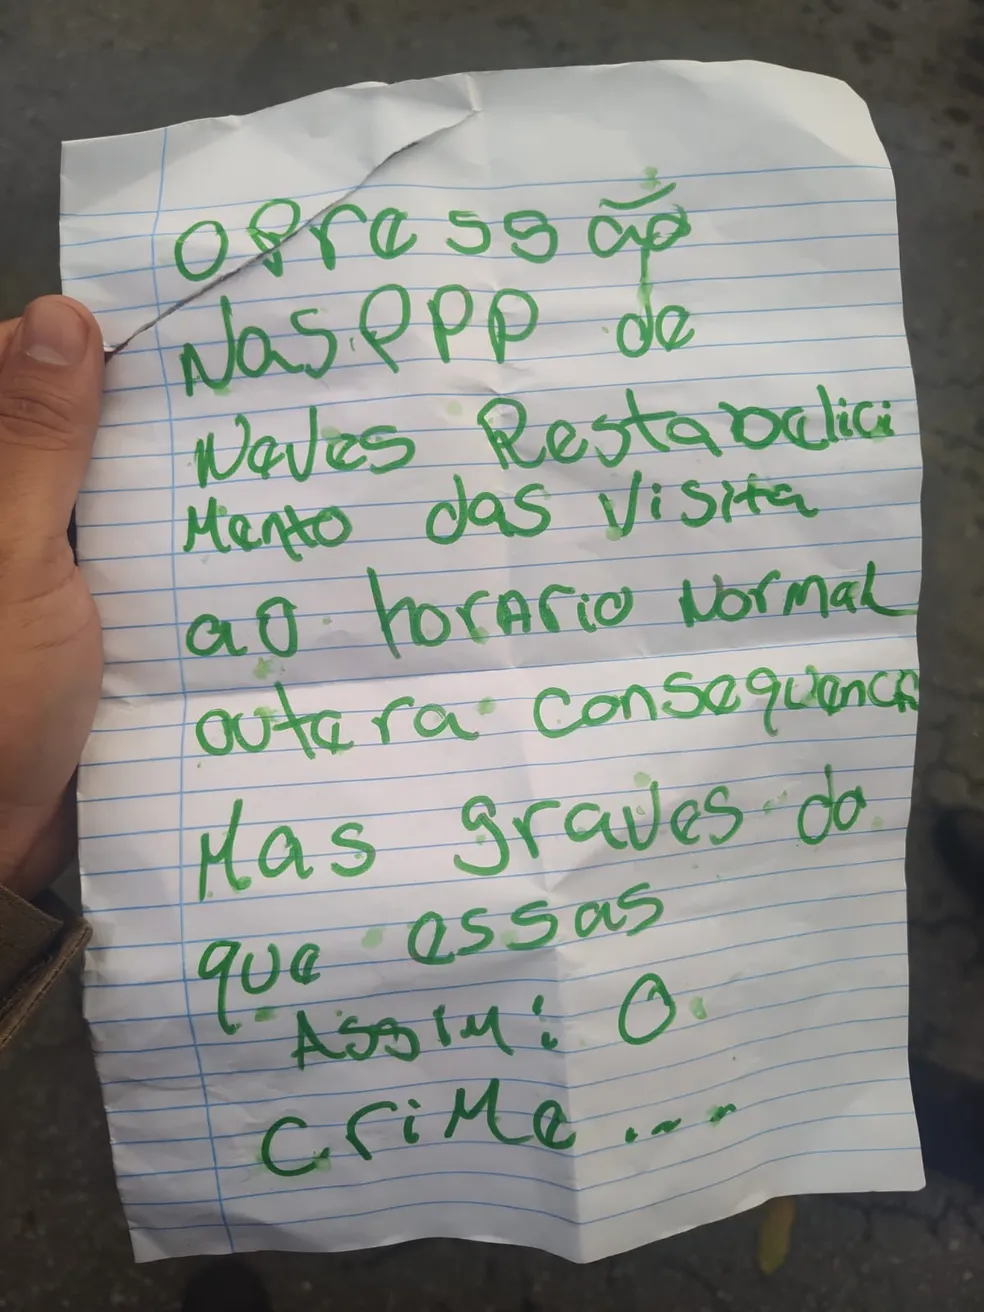 opressão
Nas PPP de
Neves Restabelici
Mento das Visita
ao horArio Normal
outera consequenca
Mas graves do
que essas
Assim: O
CriMe...